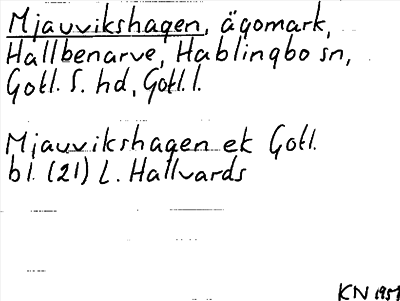 Mjauvikshagen, ägomark,
Hallbenarve, Hablingbo sn,
Gotl. S. hd, Gotl. l.
Mjauvikshagen ek Gotl.
bl. (21) L. Hallvards
KN 1951